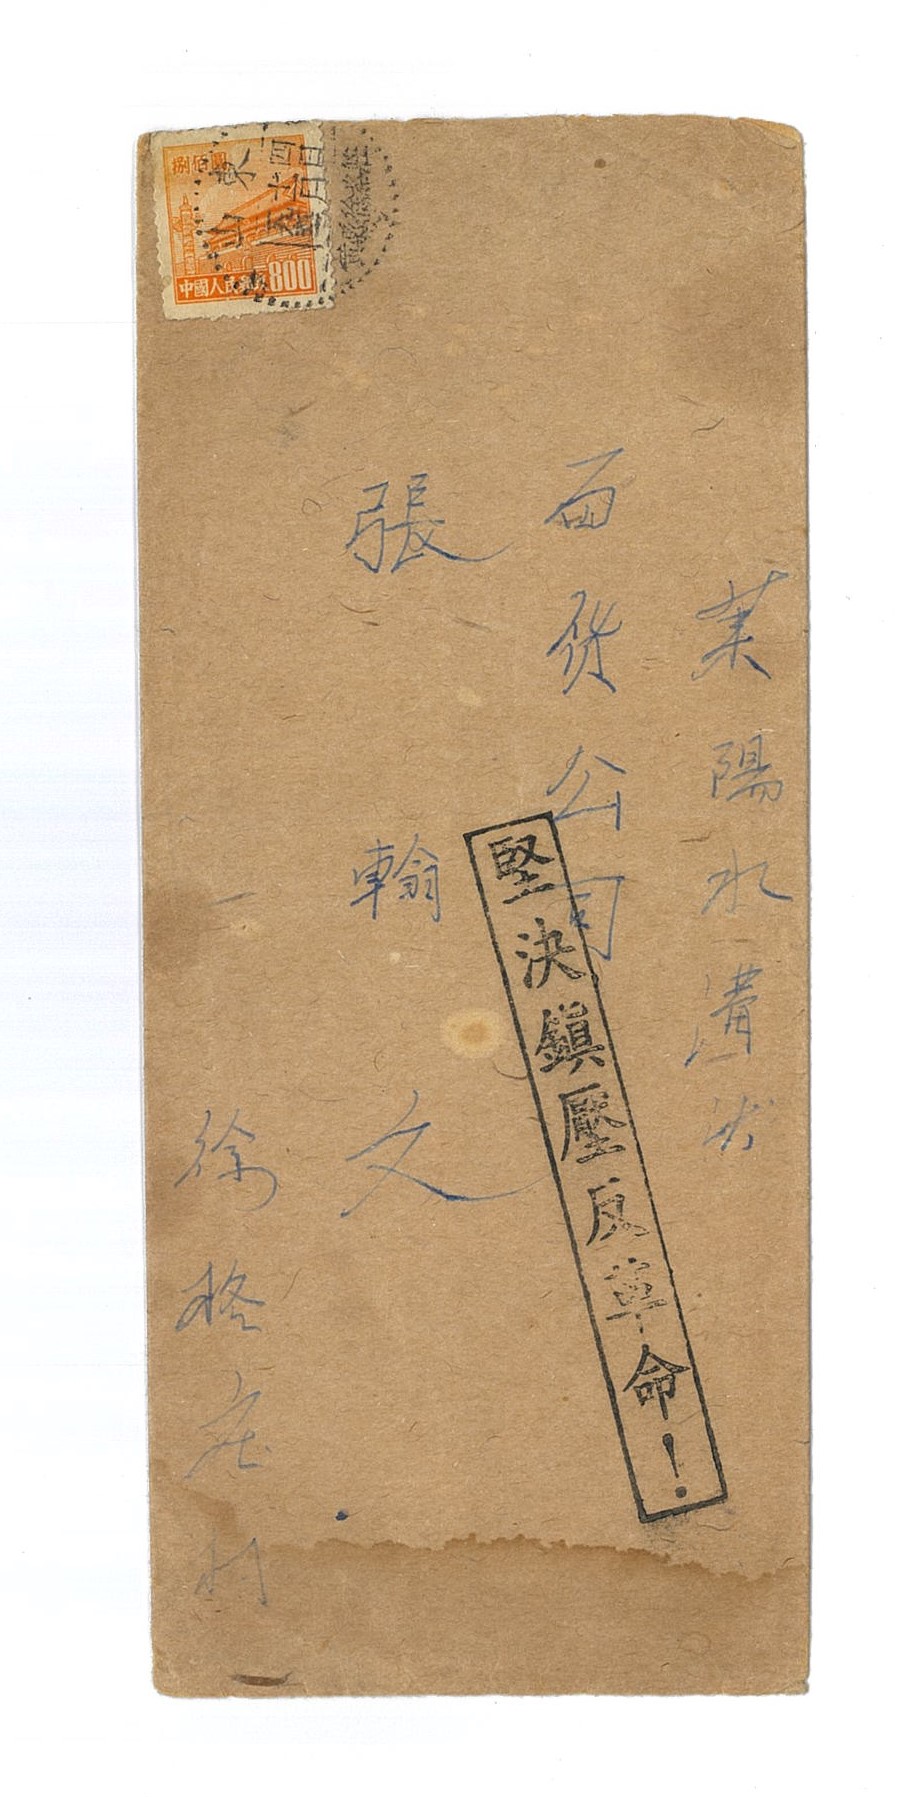 萊陽水溝
百貨公司
張翰文
徐格庄村
堅決鎮壓反革命！
捌佰圓
中國人民郵政
800
山東